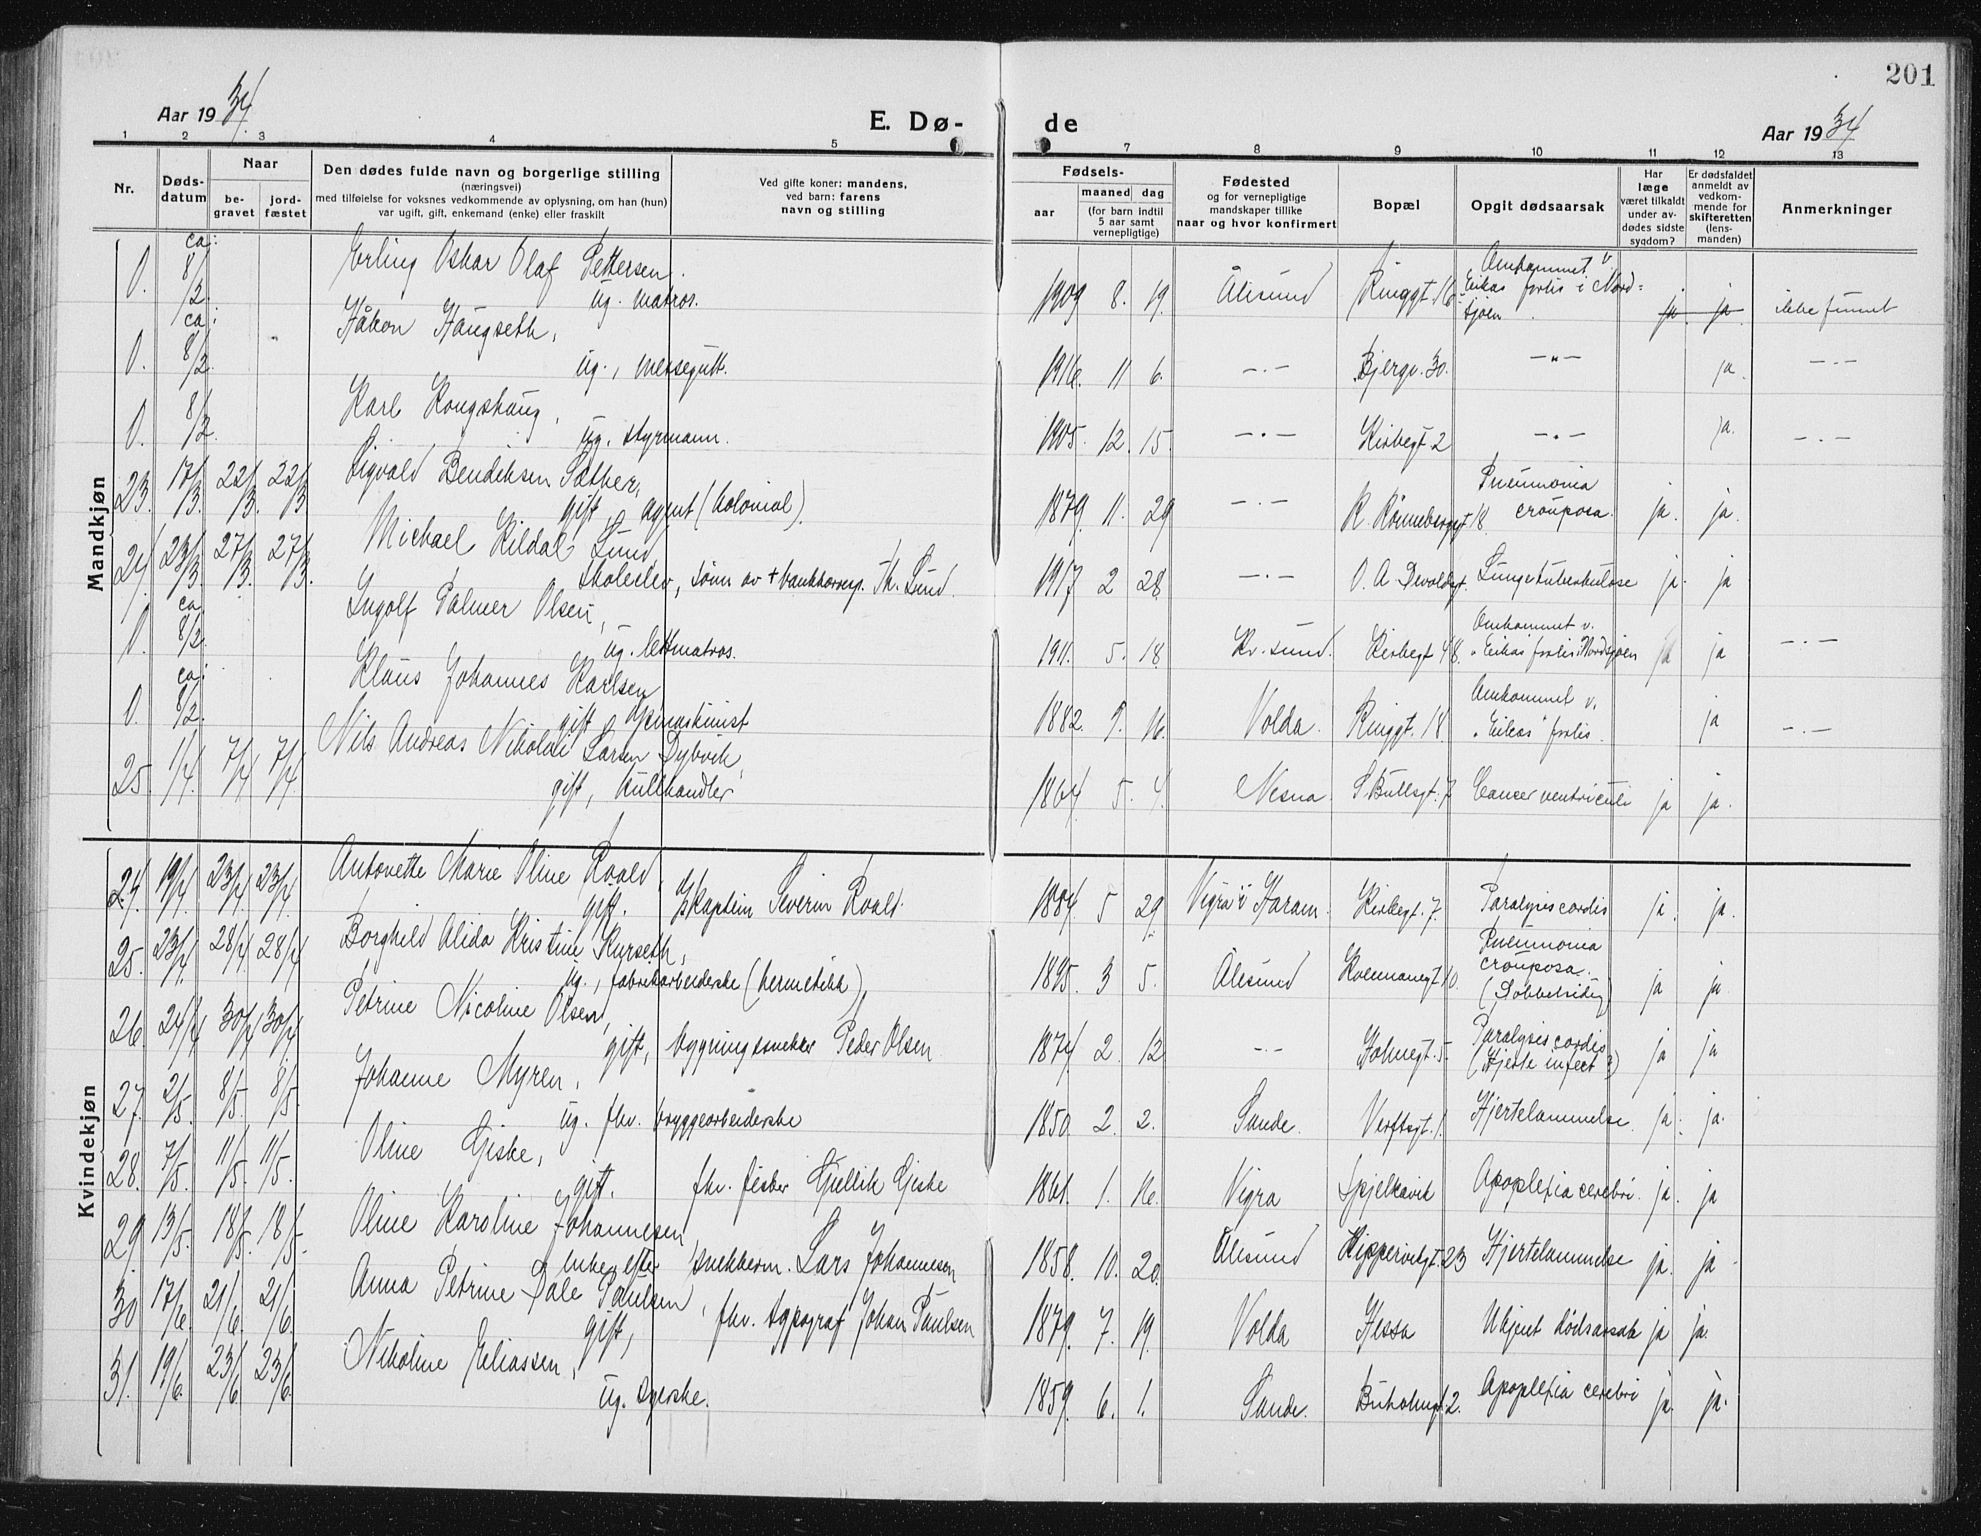 201
Aar 1934.
E. Dø-
de
Aar 1934
1 2 3 4 5 7 8 9 10 11 12 13
Nr.
Døds-
datum
Naar
be-
gravet
jord-
fæstet
Den dødes fulde navn og borgerlige stilling
(næringsvei)
med tilføielse for voksnes vedkommende av oplysning, om han (hun)
var ugift, gift, enkemand (enke) eller fraskilt
Ved gifte koner: mandens,
ved barn: farens
navn og stilling
Fødsels-
aar
maaned dag
(for barn indtil
5 aar samt
vernepligtige)
Fødested
og for vernepligtige
mandskaper tillike
naar og hvor konfirmert
Bopæl
Opgit dødsaarsak
Har
læge
været tilkaldt
under av-
dødes sidste
sygdom?
Er dødsfaldet
anmeldt av
vedkom-
mende for
skifteretten
(lens-
manden)
Anmerkninger
Mandkjøn
0. ca: 8/2 Erling Oskar Olaf Pettersen.
ug. matros. 1909 8. 19. Ålesund Ringgt. 16 Omkommet v. Eikas forlis i Nord-
sjøen. ja. ja. ikke funnet
0. ca: 8/2. Håkon Haugseth,
ug., messegutt. 1916. 11 6. -"- Bjergv. 30. -"- ja. -"-
0. 8/2. Karl Kongshaug,
ug. styrmann. 1905. 12. 15. -"- Kirkegt 2 -"- ja. -"-
23. 17/3. 22/3. 22/3 Sigvald Bendiksen Sæther,
gift, agent (kolonial). 1879. 11. 29 -"- K. Rønnebergsgt 18. Pneumonia
crouposa. ja. ja.
24. 23/3. 27/3. 27/3. Michael Kildal Lund
skoleelev, sønn av + bankkorresp. Th. Lund. 1917 2 28. -"- O. A. Devoldsgt. Lungetuberkulose ja. ja
0. ca 8/2. Ingolf Palmer Olsen,
ug. lettmatros. 1911. 5. 18 Kr.sund. Kirkegt 48. Omkommet v.
"Eikas forlis i Nordsjøen ja ja -"-
0. ca: 8/2. Klaus Johannes Karlsen
gift, maskinist 1882. 9. 16. Volda. Ringgt. 18. Omkommet v.
"Eikas" forlis. ja -"-
25. 1/4. 7/4 7/4. Nils Andreas Nikolai Larsen Dybvik,
gift, kullhandler 1864 5. 4. Nesna. S Bullsgt. 7 Cancer ventriculi ja ja.
Kvindekjøn
24. 19/4. 23/4. 23/4. Antonette Marie Oline Roald,
gift. Kaptein Severin Roald. 1884. 5 29. Vigra i Haram. Kirkegt. 7. Paralysis cordis ja. ja.
25. 23/4. 28/4. 28/4 Borghild Alida Kristine Kurseth,
ug., fabrikarbeiderske (hermetikk) 1895. 3 5. Ålesund 10. Pneumonia
crouposa.
(Dobbelsidig) ja ja.
26. 24/4 30/4 30/4 Petrine Nicoline Olsen,
gift, bygningssnekker Peder Olsen. 1874. 2. 12 -"- Holmegt. 5. Paralysis cordis
(Hjerte infect?) ja ja
27. 2/5. 8/5. 8/5. Johanne Myren,
ug. fhv. bryggearbeiderske 1850. 2. 2. Sande. Verftsgt. 1. Hjertelammelse. ja. ja.
28. 7/5. 11/5. 11/5. Oline Giske,
gift. fhv. fisker Gjellik Giske 1861. 1. 16. Vigra Spjelkavik Apoplexia cerebri. ja. ja
29. 13/5. 18/5. 18/5. Oline Karoline Johannesen,
enke efter snekkerm. Lars Johannesen 1858. 10. 20. Ålesund Skippervikgt. 23 Hjertelammelse ja. ja.
30 17/6. 21/6. 21/6. Anna Petrine Dale Paulsen,
gift, fhv. typograf Johan Paulsen 1879. 7. 19. Volda Hessa Ukjent dødsårsak ja ja.
31. 19/6. 23/6 23/6. Nikoline Eliassen,
ug. syerske. 1859. 6. 1. Sande. Buholmgt. 2. Apoplexia cerebri ja. ja.